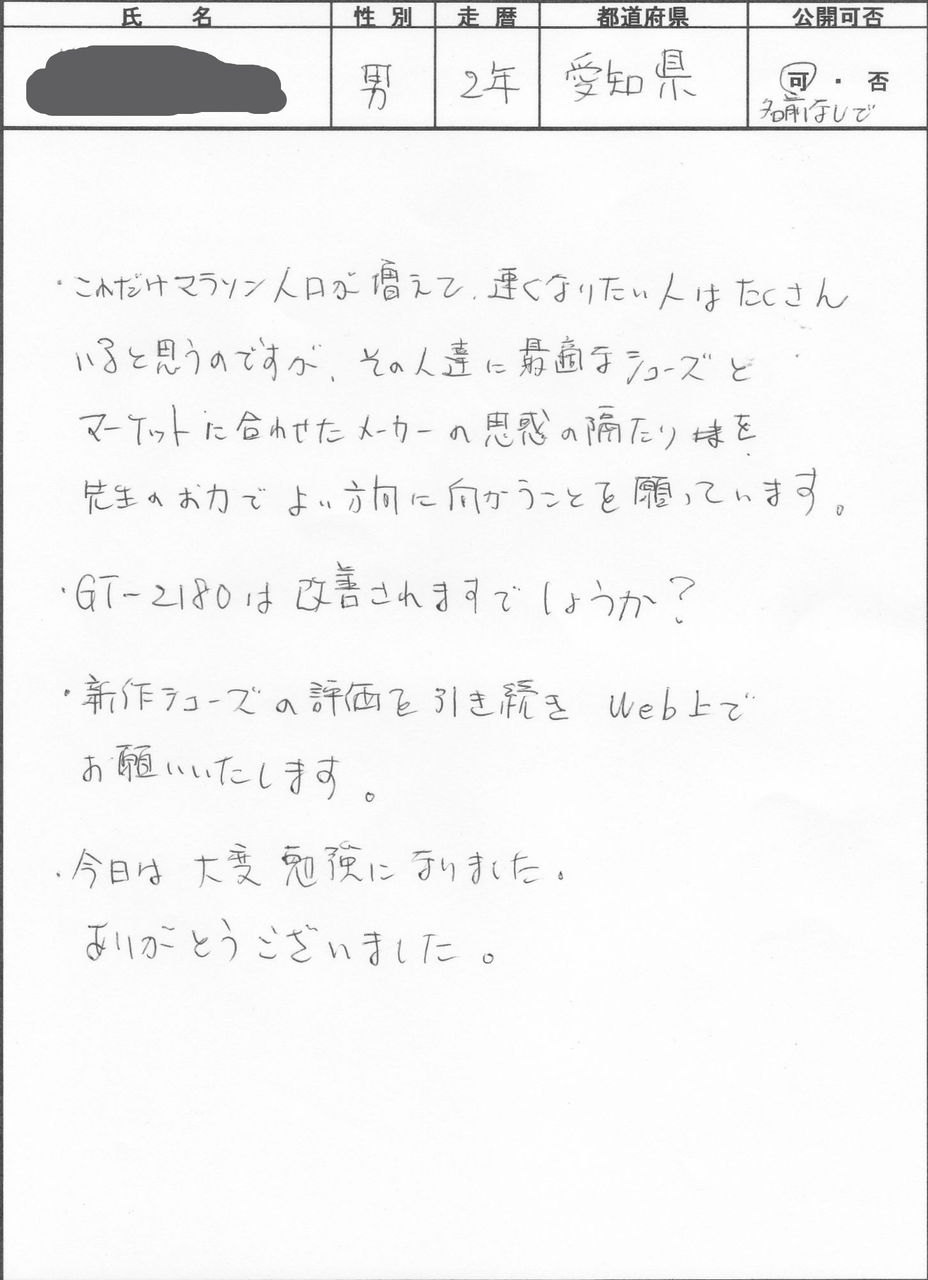 氏 名 性別 走暦 都道府県 公開可否
男 2年 愛知県 可・否
名前なしで
・これだけマラソン人口が増えて、速くなりたい人はたくさん
いると思うのですが、その人達に最適なシューズと
マーケットに合わせたメーカーの思惑の隔たりを
先生のお力でよい方向に向かうことを願っています。
・GT-2180は改善されますでしょうか?
・新作シューズの評価を引き続きWeb上で
お願いいたします。
・今日は大変勉強になりました。
ありがとうございました。